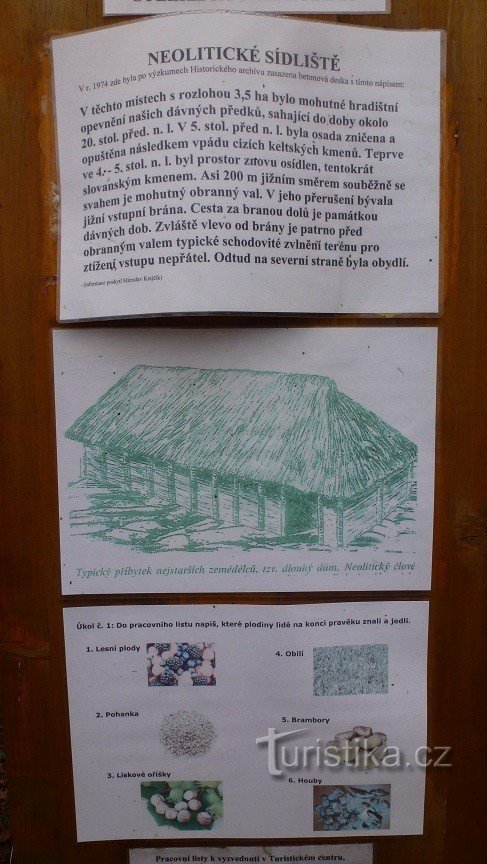 NEOLITICKÉ SÍDLIŠTĚ
V r. 1974 zde byla po výzkumech Historického archívu zasazena betonová deska s tímto nápisem:
V těchto místech s rozlohou 3,5 ha bylo mohutné hradištní
opevnění našich dávných předků, sahající do doby okolo
20. stol. před. n. l. V 5. stol. před n. l. byla osada zničena a
opuštěna následkem vpádu cizích keltských kmenů. Teprve
ve 4.- 5. stol. n. l. byl prostor znovu osídlen, tentokrát
slovanským kmenem. Asi 200 m jižním směrem souběžně se
svahem je mohutný obranný val. V jeho přerušení bývala
jižní vstupní brána. Cesta za branou dolů je památkou
dávných dob. Zvláště vlevo od brány je patrno před
obranným valem typické schodovité zvlnění terénu pro
ztížení vstupu nepřátel. Odtud na severní straně byla obydlí.
(informace poskytl Miroslav Krejčík)
Typický příbytek nejstarších zemědělců, tzv. dlouhý dům. Neolitický člově
Úkol č. 1: Do pracovního listu napiš, které plodiny lidé na konci pravěku znali a jedli.
1. Lesní plody
4. Obilí
2. Pohanka
5. Brambory
3. Lískové oříšky
6. Houby
Turistika.cz
Pracovní listy k vyzvednutí v Turistickém centru.